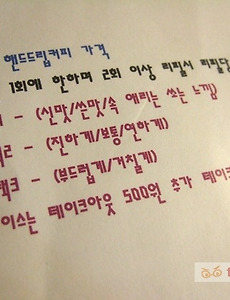 핸드드립커피 가격
1회에 한하며 2회 이상 리필시 리필당
- (신맛/쓴맛/속 애리는 쓰는 느낌)
- (진하게/보통/연하게)
- (부드럽게/거칠게)
테이크아웃 500원 추가